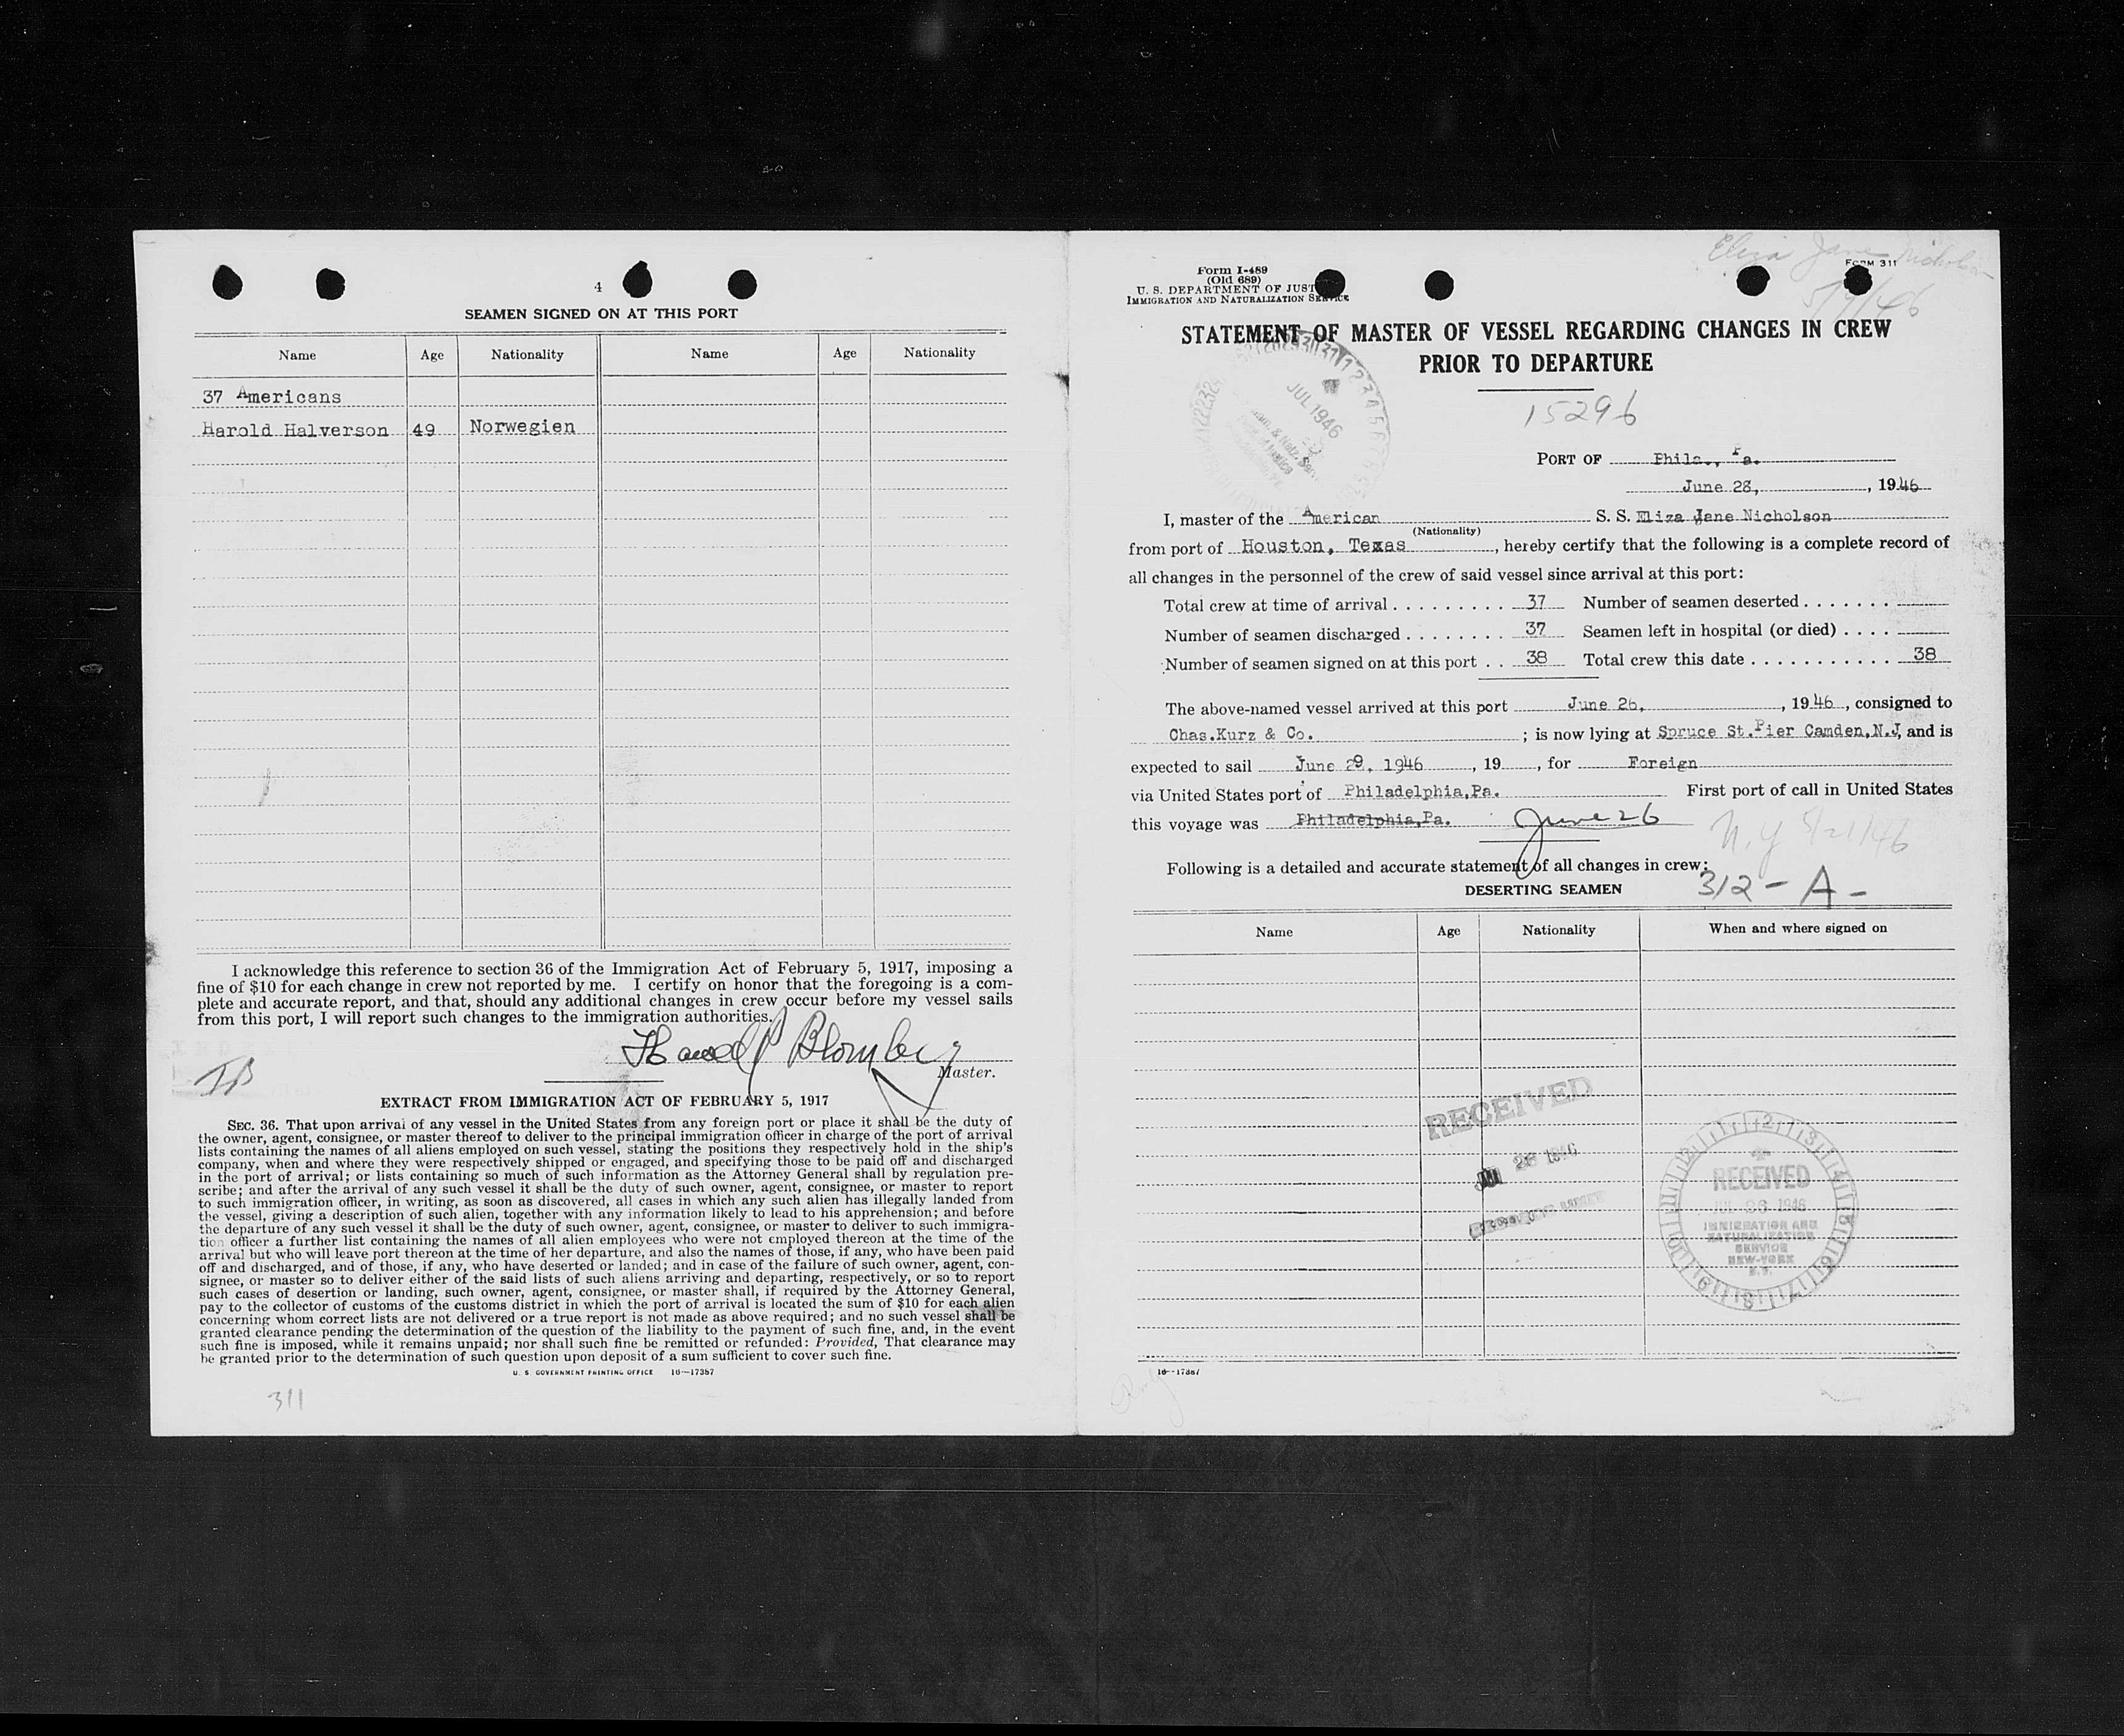 4
SEAMEN SIGNED ON AT THIS PORT
Name Age Nationality Name Age Nationality
37 Americans
Harold Halverson 49 Norwegien
I acknowledge this reference to section 36 of the Immigration Act of February 5, 1917, imposing a
fine of $10 for each change in crew not reported by me. I certify on honor that the foregoing is a com-
plete and accurate report, and that, should any additional changes in crew occur before my vessel sails
from this port, I will report such changes to the immigration authorities.
Master.
EXTRACT FROM IMMIGRATION ACT OF FEBRUARY 5, 1917
SEC. 36. That upon arrival of any vessel in the United States from any foreign port or place it shall be the duty of
the owner, agent, consignee, or master thereof to deliver to the principal immigration officer in charge of the port of arrival
lists containing the names of all aliens employed on such vessel, stating the positions they respectively hold in the ship's
company, when and where they were respectively shipped or engaged, and specifying those to be paid off and discharged
in the port of arrival; or lists containing so much of such information as the Attorney General shall by regulation pre-
scribe; and after the arrival of any such vessel it shall be the duty of such owner, agent, consignee, or master to report
to such immigration officer, in writing, as soon as discovered, all cases in which any such alien has illegally landed from
the vessel, giving a description of such alien, together with any information likely to lead to his apprehension; and before
the departure of any such vessel it shall be the duty of such owner, agent, consignee, or master to deliver to such immigra-
tion officer a further list containing the names of all alien employees who were not employed thereon at the time of the
arrival but who will leave port thereon at the time of her departure, and also the names of those, if any, who have been paid
off and discharged, and of those, if any, who have deserted or landed; and in case of the failure of such owner, agent, con-
signee, or master so to deliver either of the said lists of such aliens arriving and departing, respectively, or so to report
such cases of desertion or landing, such owner, agent, consignee, or master shall, if required by the Attorney General,
pay to the collector of customs of the customs district in which the port of arrival is located the sum of $10 for each alien
concerning whom correct lists are not delivered or a true report is not made as above required; and no such vessel shall be
granted clearance pending the determination of the question of the liability to the payment of such fine, and, in the event
such fine is imposed, while it remains unpaid; nor shall such fine be remitted or refunded: Provided, That clearance may
be granted prior to the determination of such question upon deposit of a sum sufficient to cover such fine.
U. S. GOVERNMENT PRINTING OFFICE 16—17387
311
Eliza Jane Nicholson
Form I-489
(Old 689)
U. S. DEPARTMENT OF JUST
IMMIGRATION AND NATURALIZATION SERVICE
FORM 311
STATEMENT OF MASTER OF VESSEL REGARDING CHANGES IN CREW
PRIOR TO DEPARTURE
JUL 1946
15296
PORT OF Phila., Pa.
June 28, , 1946
I, master of the American S. S. Eliza Jane Nicholson
(Nationality)
from port of Houston, Texas , hereby certify that the following is a complete record of
all changes in the personnel of the crew of said vessel since arrival at this port:
Total crew at time of arrival . . . . . . . . . 37 Number of seamen deserted . . . . . . .
Number of seamen discharged . . . . . . . . 37 Seamen left in hospital (or died) . . . .
Number of seamen signed on at this port . . 38 Total crew this date . . . . . . . . . . . 38
The above-named vessel arrived at this port June 26, , 1946 , consigned to
Chas.Kurz & Co. ; is now lying at Spruce St.Pier Camden,N.J, and is
expected to sail June 29, 1946 , 19 , for Foreign
via United States port of Philadelphia,Pa. First port of call in United States
this voyage was Philadelphia,Pa. June 26
N.Y 5/21/46
Following is a detailed and accurate statement of all changes in crew:
312 - A -
DESERTING SEAMEN
Name Age Nationality When and where signed on
RECEIVED
RECEIVED
JUL 26 1946
IMMIGRATION AND
NATURALIZATION
SERVICE
NEW-YORK
N.Y.
16—17387